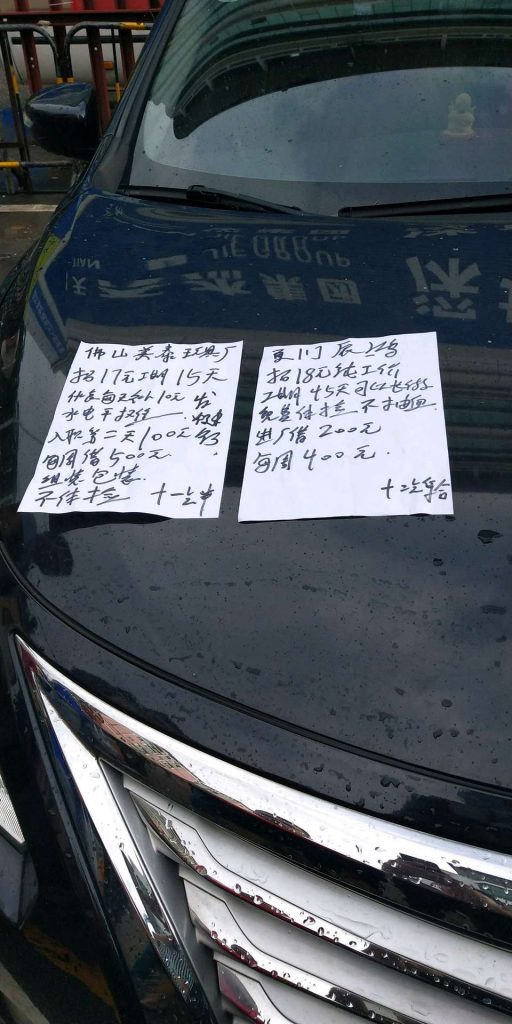 佛山美泰玩具厂
招17元工期15天
住宿每天扣10元
水电平摊
入职第二天100元
每周借500元
组装包装
不体检
十一点
厦门辰鸿
招18元纯工价
工期45天可以长期
免费体检 不抽血
进厂借200元
每周400元
十二点集合
JIE GROUP
集团
深